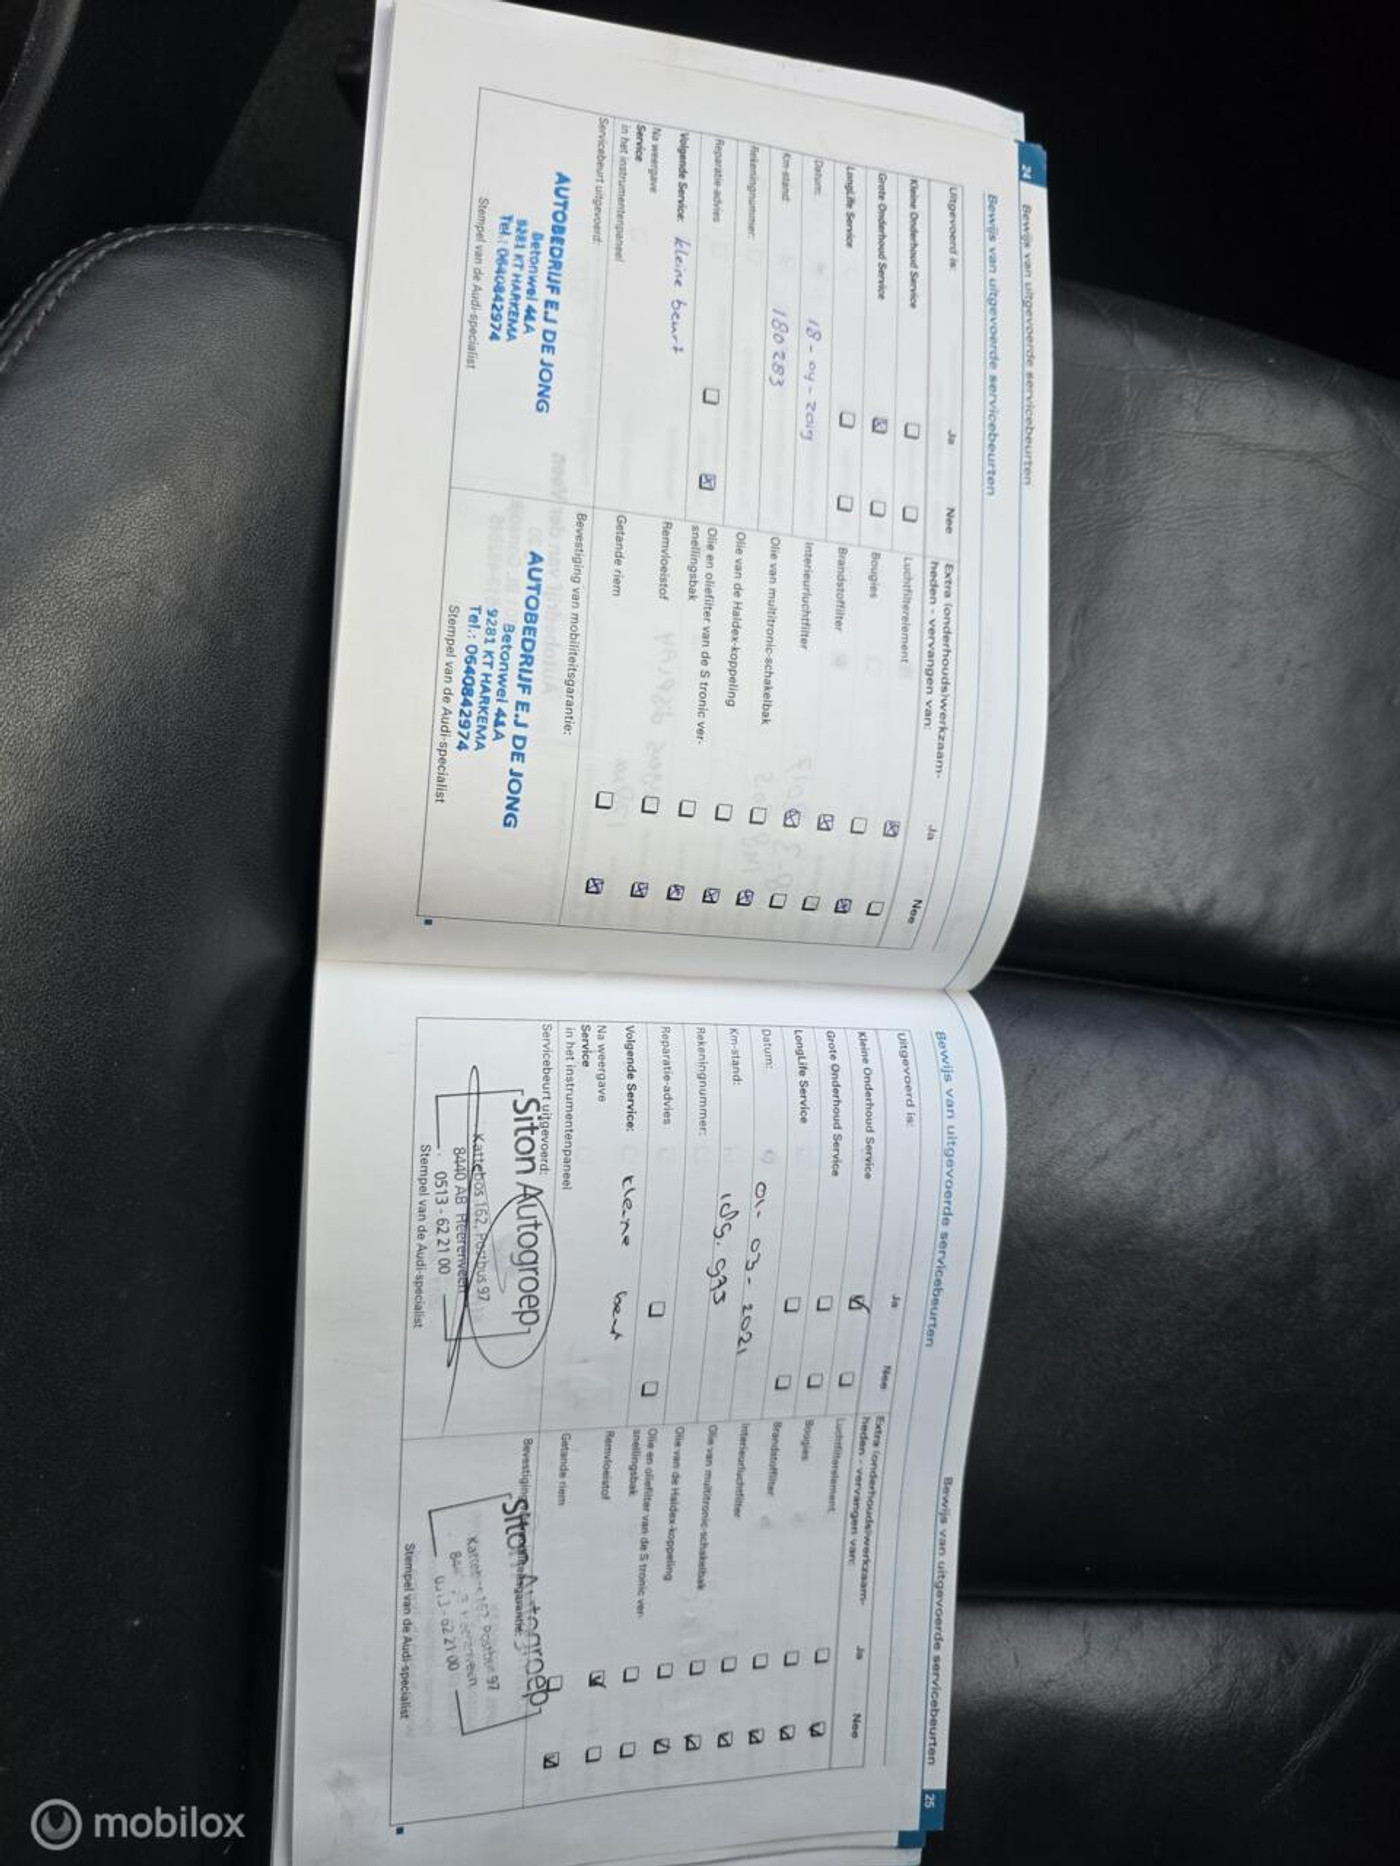 24 Bewijs van uitgevoerde servicebeurten
Bewijs van uitgevoerde servicebeurten
Uitgevoerd is: Ja Nee
Kleine Onderhoud Service
Grote Onderhoud Service
LongLife Service
Datum: 18-04-2019
Km-stand: 180283
Rekeningnummer:
Reparatie-advies
Volgende Service: kleine beurt
Na weergave
Service
in het instrumentenpaneel
Servicebeurt uitgevoerd:
AUTOBEDRIJF E.J DE JONG
Betonwei 44A
9281 KT HARKEMA
Tel.: 0640842974
Stempel van de Audi-specialist
Extra (onderhouds)werkzaam-
heden - vervangen van: Ja Nee
Luchtfilterelement
Bougies
Brandstoffilter
Interieurluchtfilter
Olie van multitronic-schakelbak
Olie van de Haldex-koppeling
Olie en oliefilter van de S tronic ver-
snellingsbak
Remvloeistof
Getande riem
Bevestiging van mobiliteitsgarantie:
AUTOBEDRIJF E.J DE JONG
Betonwei 44A
9281 KT HARKEMA
Tel.: 0640842974
Stempel van de Audi-specialist
Bewijs van uitgevoerde servicebeurten
Bewijs van uitgevoerde servicebeurten 25
Uitgevoerd is: Ja Nee
Kleine Onderhoud Service
Grote Onderhoud Service
LongLife Service
Datum: 01-03-2021
Km-stand:
Rekeningnummer:
Reparatie-advies
Volgende Service: kleine beurt
Na weergave
Service
in het instrumentenpaneel
Servicebeurt uitgevoerd:
Siton Autogroep
Kattebos 162, Postbus 97
8440 AB Heerenveen
0513 - 62 21 00
Stempel van de Audi-specialist
Extra (onderhouds)werkzaam-
heden - vervangen van: Ja Nee
Luchtfilterelement
Bougies
Brandstoffilter
Interieurluchtfilter
Olie van multitronic-schakelbak
Olie van de Haldex-koppeling
Olie en oliefilter van de S tronic ver-
snellingsbak
Remvloeistof
Getande riem
Bevestiging
Autogroep
Postbus 97
0513 - 62 21 00
Stempel van de Audi-specialist
mobilox